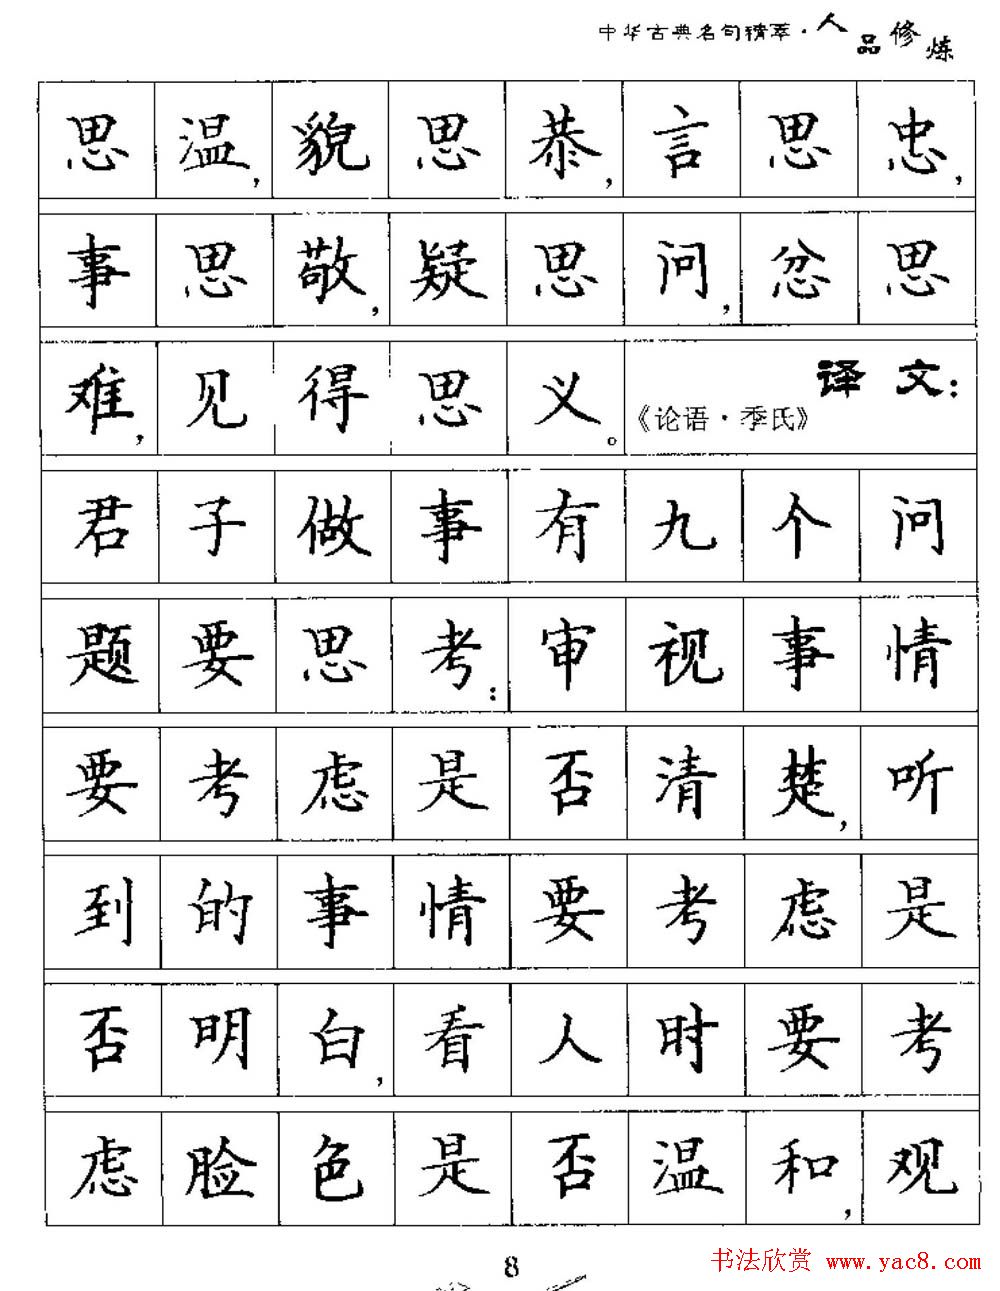 中华古典名句精萃·人品修炼
思温,貌思恭,言思忠,
事思敬,疑思问,忿思
难,见得思义。《论语·季氏》译文:
君子做事有九个问
题要思考:审视事情
要考虑是否清楚,听
到的事情要考虑是
否明白,看人时要考
虑脸色是否温和,观
8
书法欣赏 www.yac8.com